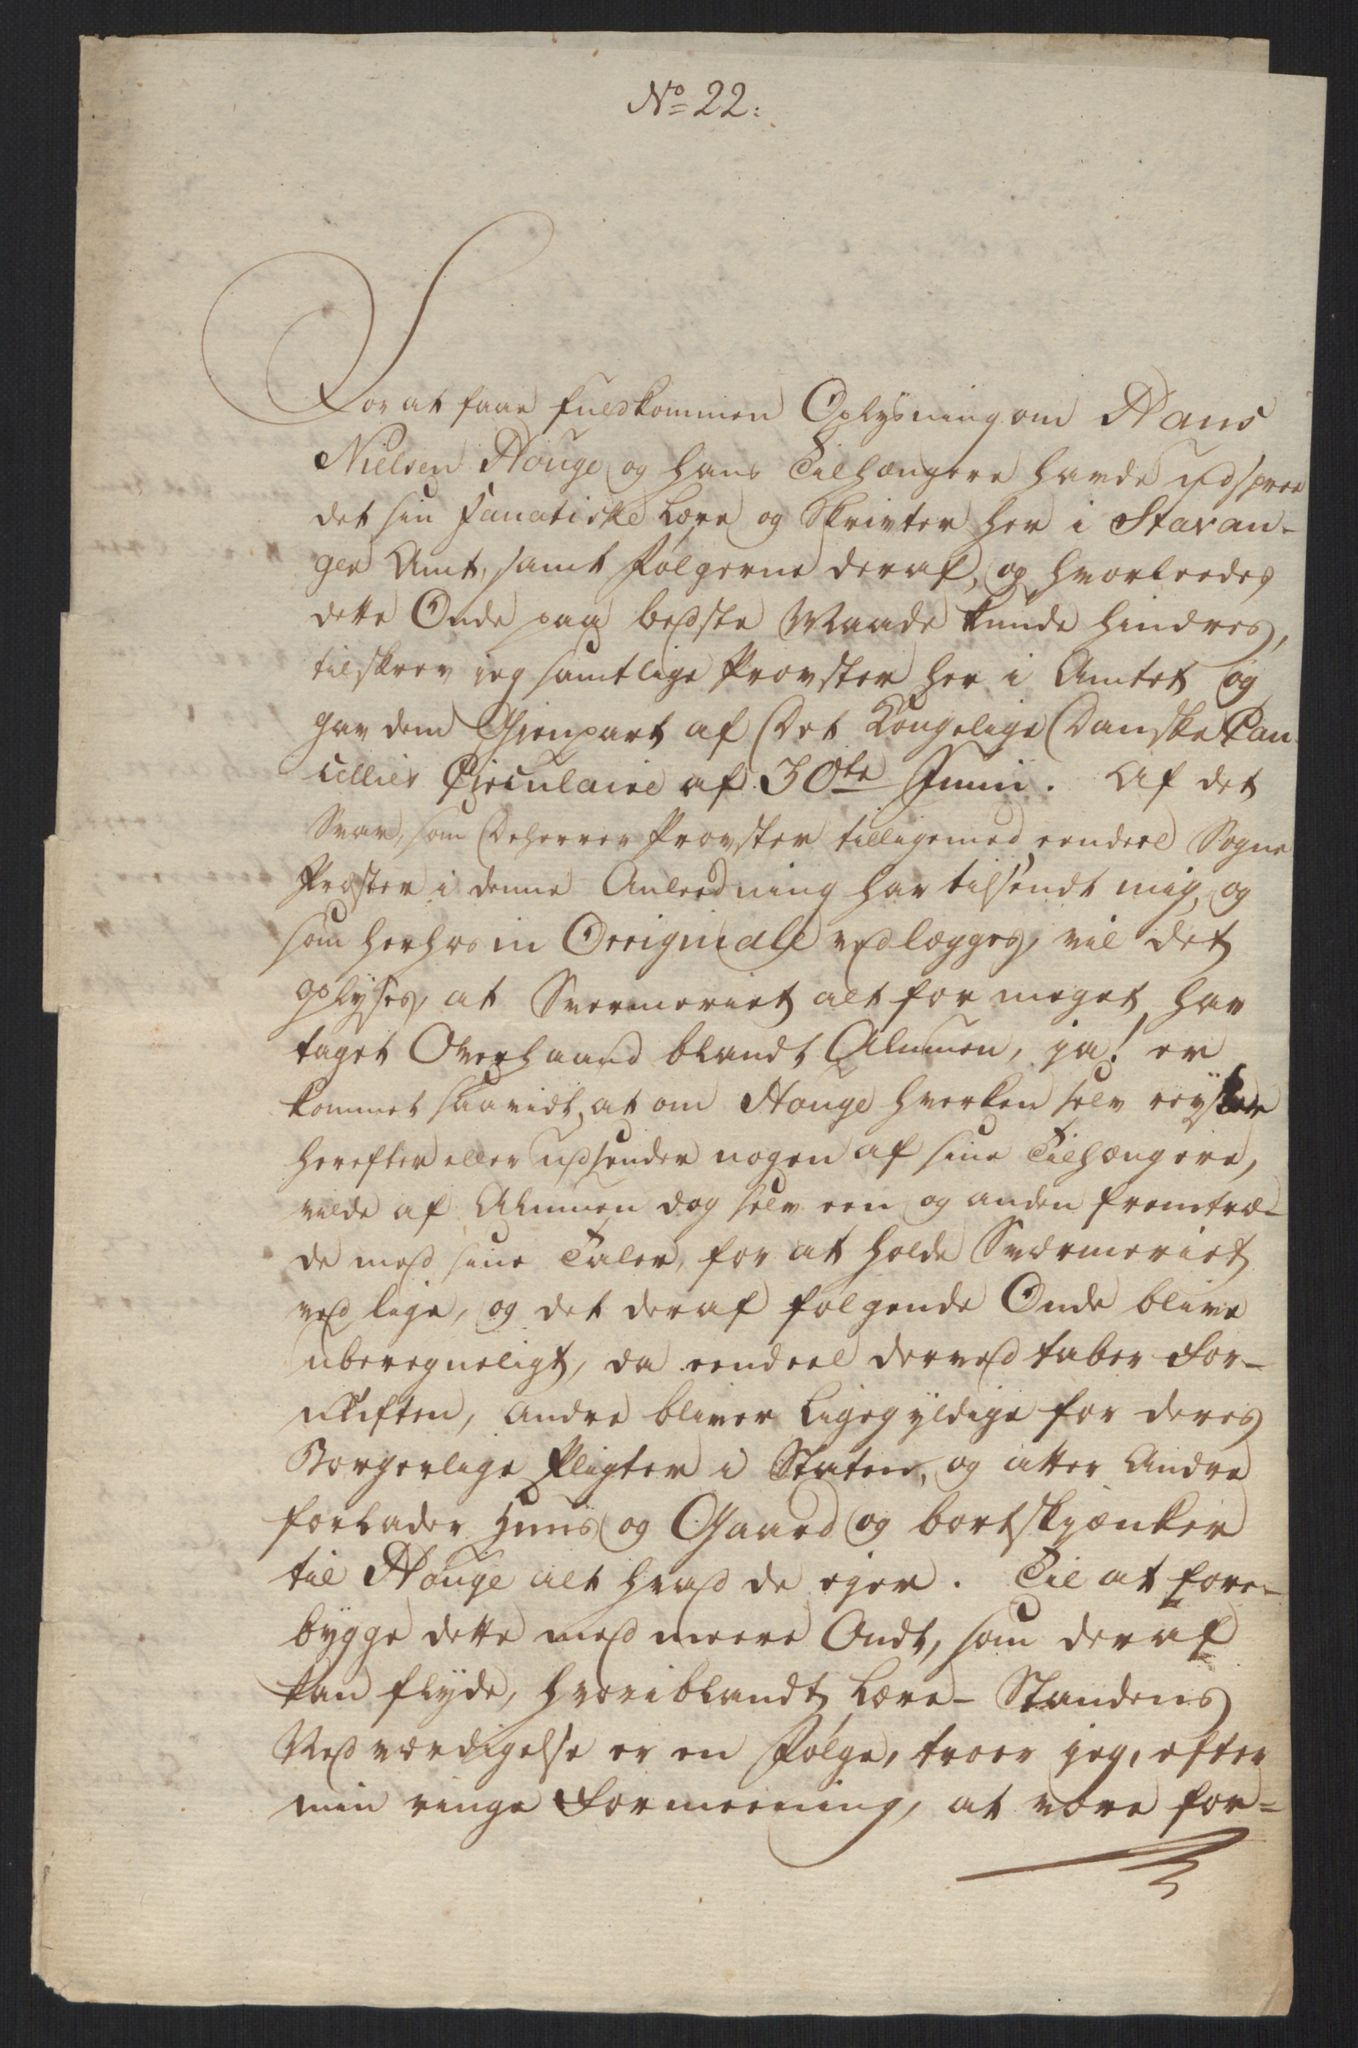 No 22:
For at faae fuldkommen Oplysning om Hans
Nielsen Houge og hans Tilhængere havde udspree
det sin Fanatiske Lære og Skrivter her i Stavan-
ger Amt, samt Følgerne deraf, og hvorleedes
dette Onde paa bedste Maade kunde hindres,
tilskrev jeg samtlige Provster her i Amtet og
gav dem Gienpart af Det Kongelige Danske Can
cellies Circulaire af 30te Junii. Af det
Svar, som Deherrer Provster tilligemed eendeel Sogne
Præster i denne Anleedning har tilsendt mig, og
som herhos in Originale vedlægges, vil det
oplyses, at Sværmeriet alt for meget har
taget Overhaand blandt Almuen, ja! er
kommet saavidt, at om Houge hverken selv reyser
herefter eller udsender nogen af sine Tilhængere,
vilde af Almuen dog selv een og anden fremtræ-
de med sine Taler, for at holde Sværmeriet
ved lige, og det deraf følgende Onde blive
uberegneligt, da eendeel derved taber For-
nuften, andre bliver Ligegyldige for deres
Borgerlige Pligter i Staten, og atter Andre
forlader Huus og Gaard og bortskjænker
til Houge alt hvad de ejer. Til at fore-
bygge dette med meere Ondt, som deraf
kan flyde, hvoriblandt Lære-Standens
Nedværdigelse er en Følge, troer jeg, efter
min ringe Formeening, at være for-